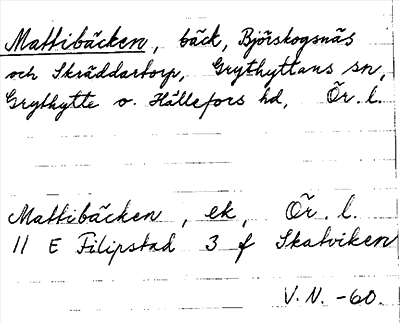 Mattibäcken, bäck, Björskogsnäs
och Skräddartorp, Grythyttans sn,
Grythytte o. Hällefors hd, Ör. l.
Mattibäcken, ek, Ör. l.
11 E Filipstad 3 f Skatviken
V. N. -60.